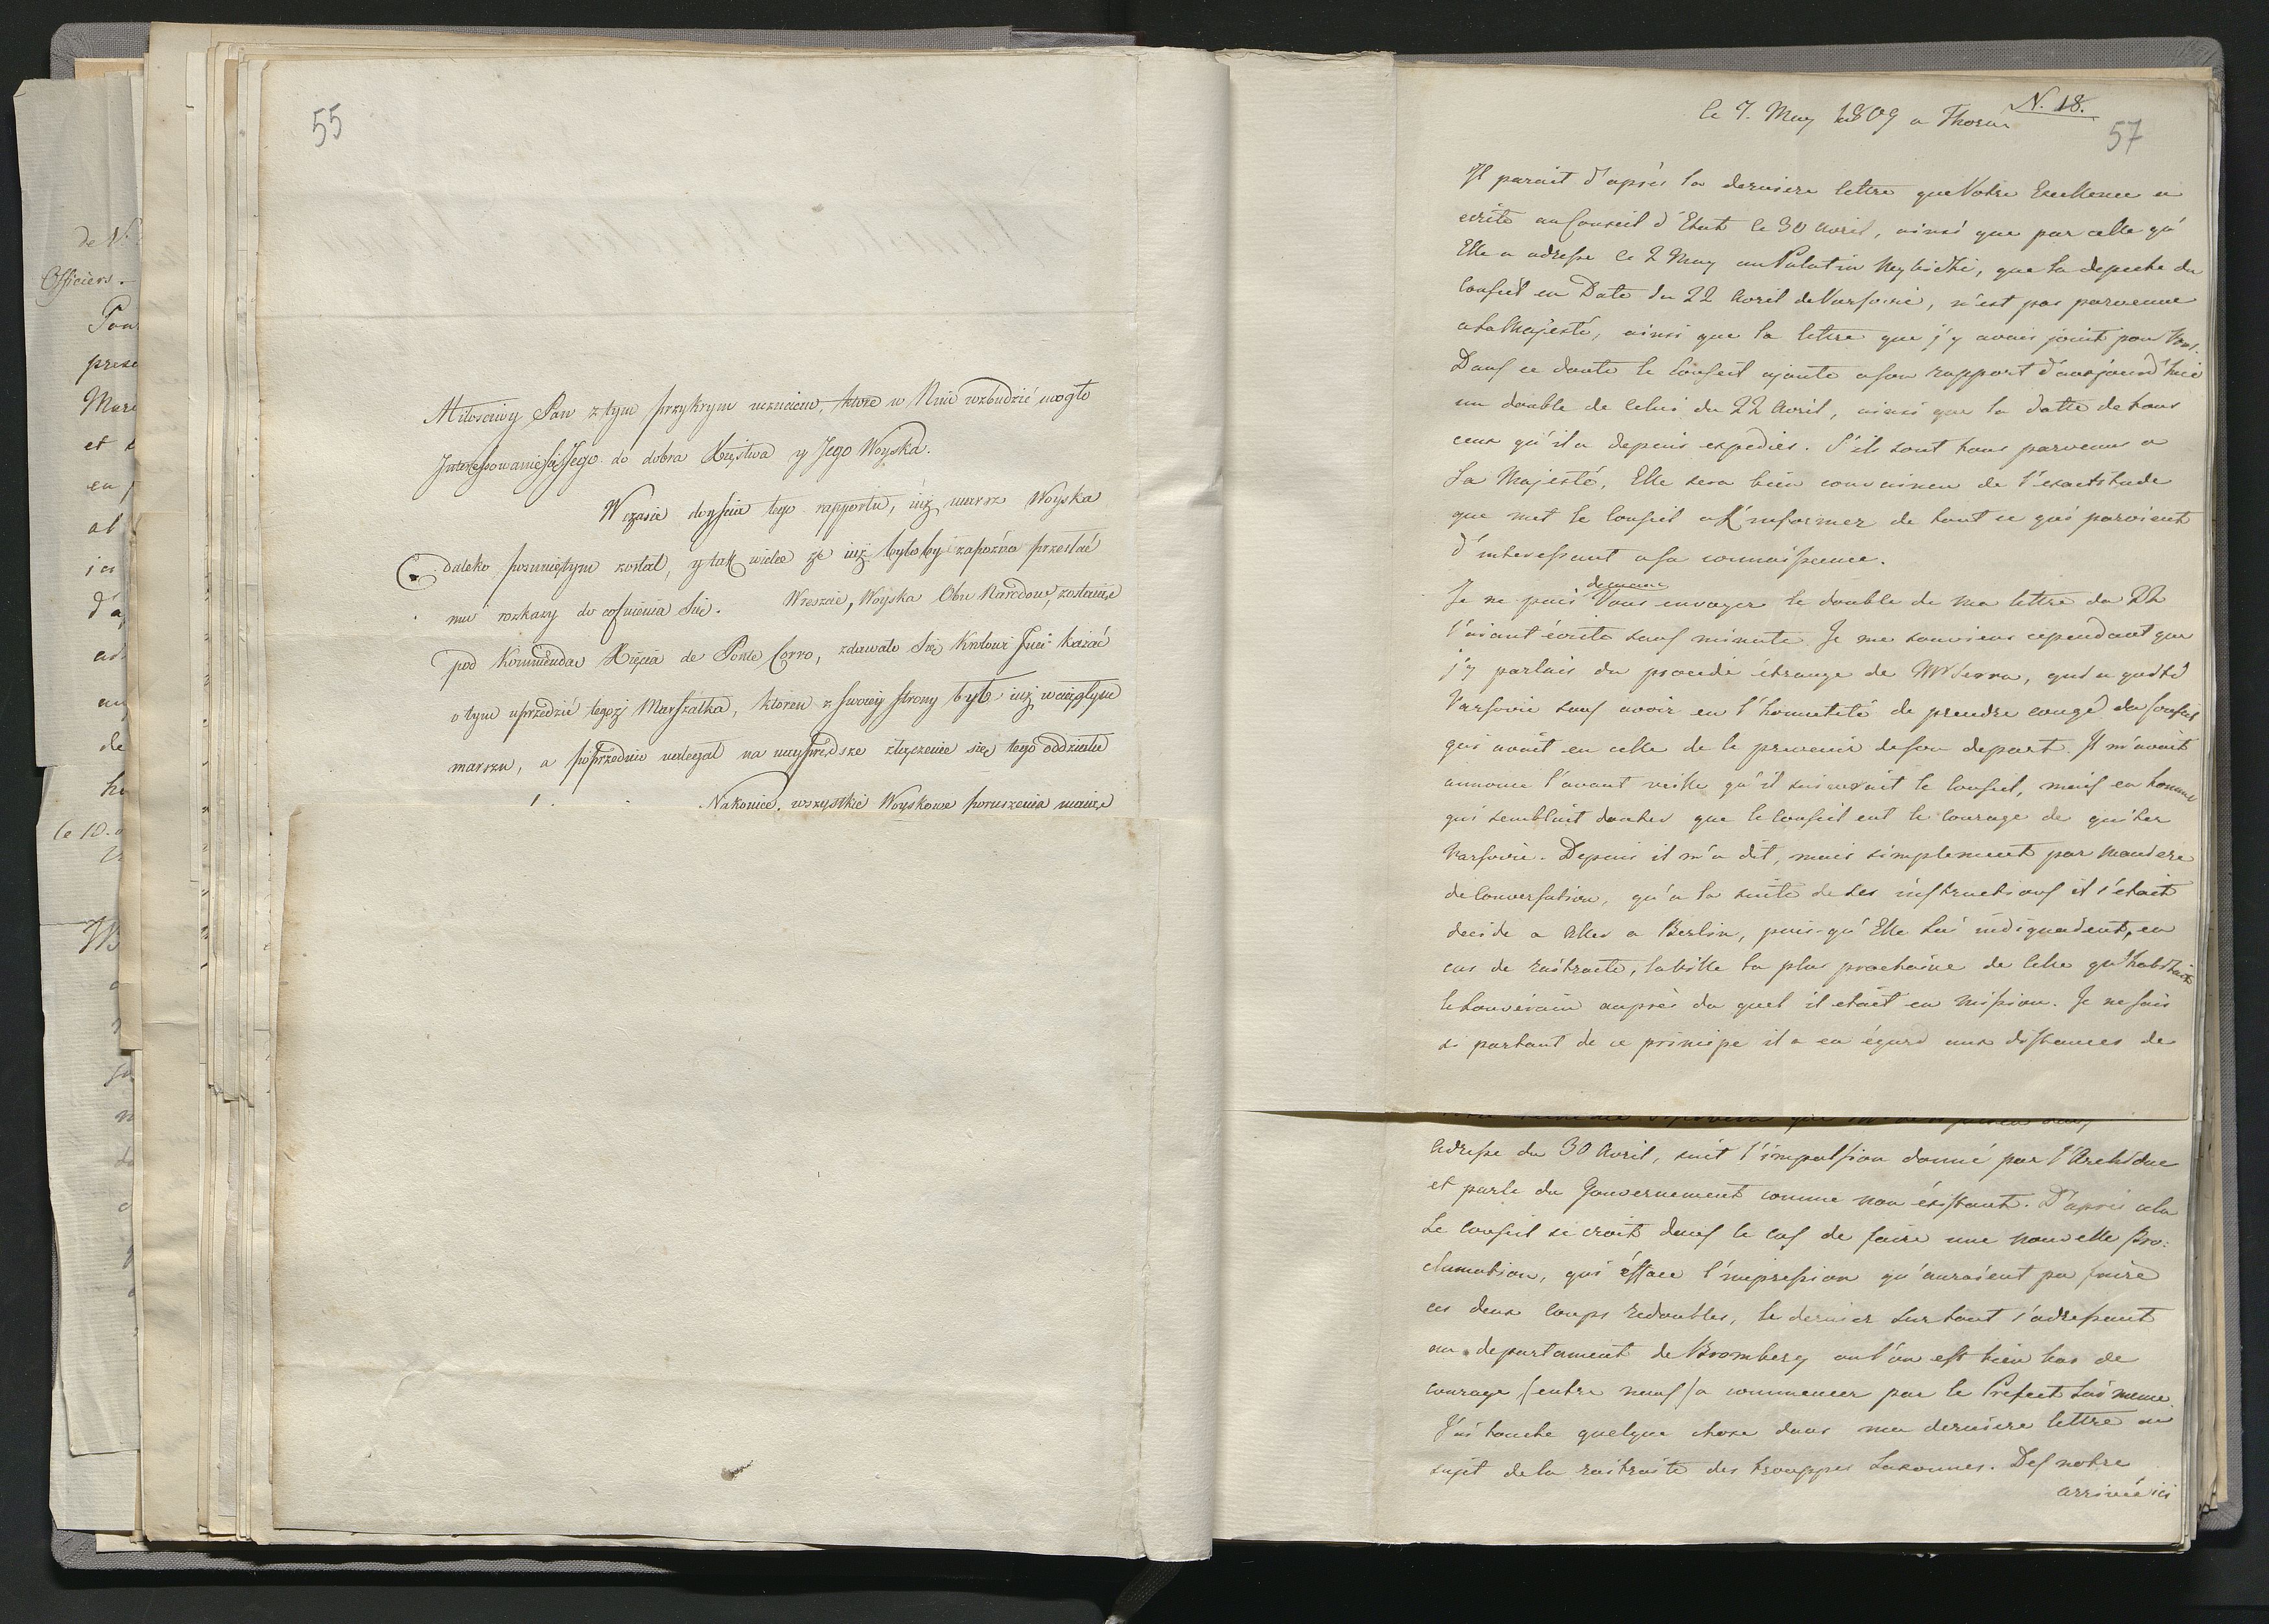 de N.
Officiers.
et
en
de
le 10.
55
Miłosciwy Pan z tym przykrym uczuciem, które w Nim wzbudzić mogło
do dobra Xięstwa y Jego Woyska.
W czasie doyścia tego rapportu, iuż marsz Woyska
daleko posuniętym został, y tak wiele że iuż byłoby zapóźno przesłać
mu rozkazy do cofnienia Się. Wreszcie, Woyska Obu Narodów, zostaiące
pod Kommendą Xięcia de Ponte Corvo, zdawało Się Krolowi Jmci kazać
o tym uprzedzić tegoż Marszałka, ktoren z swoiey strony był iuż w ciągłym
marszu, a poprzednio nalegał na nayprędsze złączenie się tego oddziału
Nakoniec, wszystkie Woyskowe poruszenia maiąc
N. 18.
le 7. May 1809 a Thorn
57
Il parait d'après la derniere lettre que Votre Excellence a
ecrite au Conseil d'Etat le 30 Avril, ainsi que par celle qu'
Elle a adressé le 2 May au Palatin, que la depeche du
Conseil en Date du 22 Avril de Varsovie, n'est pas parvenue
a Sa Majesté, ainsi que la lettre que j'y avais joint pour Vous.
Dans ce doute le Conseil ajoute a son rapport d'aujourd'hui
un double de celui du 22 Avril, ainsi que la datte de tous
ceux qu'il a depuis expediés. S'ils sont tous parvenus a
Sa Majesté, Elle sera bien convaincu de l'exactitude
que met le Conseil a L'informer de tout ce qui parvient
d'interessant a sa connaissance.
Je ne puis Vous envoyer le double de ma lettre du 22
l'aiant écrite sans minute. Je me souviens cependant que
j'y parlais du procedé étrange de Mr Serra, qui a quitté
Varsovie sans avoir eu l'honnêteté de prendre congé du Conseil
qui avait eu celle de le prevenir de son depart. Il m'avait
annoncé l'avant veille qu'il suivrait le Conseil, mais en homme
qui semblait douter que le Conseil eut le courage de quiter
Varsovie. Depuis il m'a dit, mais simplement par maniere
de Conversation, qu'a la suite de ses instructions il s'était
decidé a aller a Berlin, puis-qu'Elle Lui indiquaient, en
cas de raitraite, la ville la plus prochaine de celle qu'habitait
le Souverain auprès du quel il etait en mission. Je ne sais
si partant de ce principe il a eu égard aux distances de
Adresse du 30 Avril, suit l'impulsion donné par l'Archiduc
et parle du Gouvernement comme non éxistant. D'après cela
Le Conseil se croit dans le cas de faire une nouvelle pro:
clamation, qui éfface l'impression qu'auraient pu faire
ces deux coups redoublés, le dernier surtout s'adressant
au departament de Bromberg ou l'on est bien bas de
courage (entre nous) a commencer par le Prefect Lui meme.
J'ai touché quelque chose dans ma derniere lettre au
sujet de la raitraite des trouppes Saxonnes. Des notre
arrivée ici